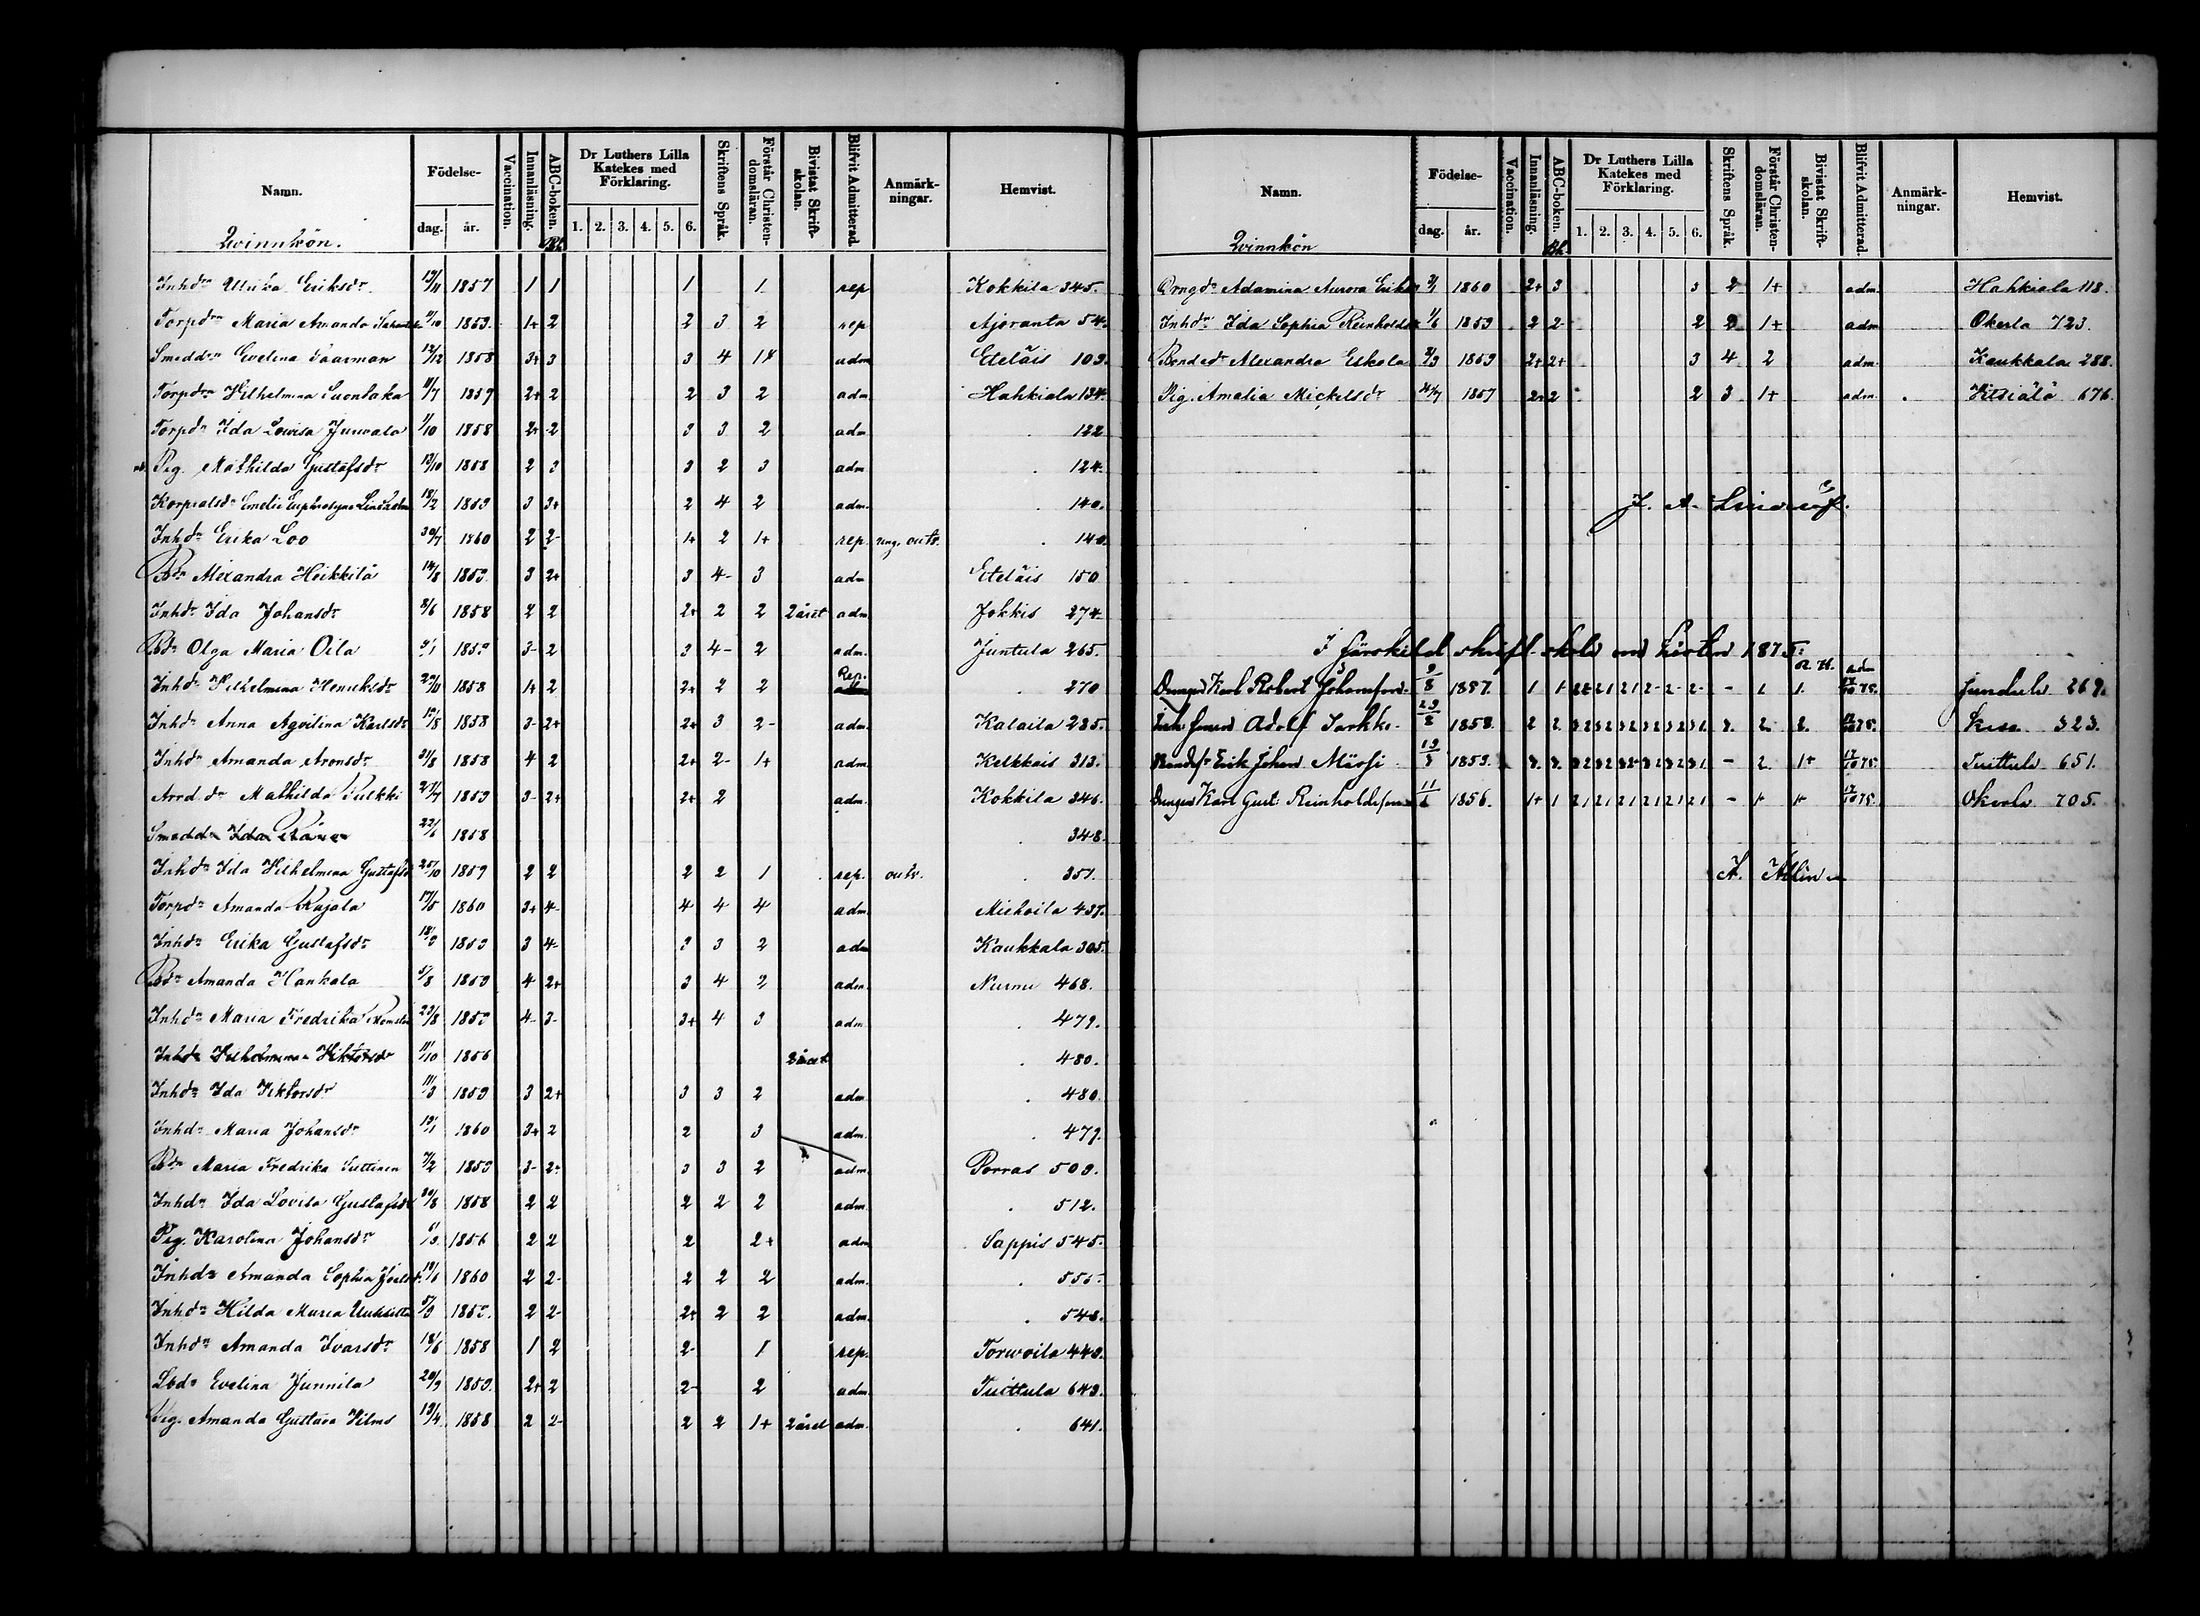 Namn. Födelse- Vaccination. Innanläsning. ABC-boken. Dr Luthers Lilla Katekes med Förklaring. Skriftens Språk. Förstår Christendomsläran. Bivistat Skriftskolan. Blifvit Admitterad. Anmärkningar. Hemvist.
dag. år. 1. 2. 3. 4. 5. 6.
Qvinnkön.
Inhdr Ulrika Eriksdr 1857 1 1 1 1 rep Kokkila 345.
Torpdr Maria Amanda 1859. 1+ 2 2 3 2 rep Ajoranta 54.
Smeddr Evelina Saarman 12/12 1858 3+ 3 3 4 1+ adm Eteläis 109.
Torpdr Wilhelmina Suontaka 11/7 1859 2+ 2 2 3 2 adm Hahkiala 134.
Torpdr Ida Lowisa Junnala 1/10 1858 2+ 2 3 3 2 adm. 122
Pig. Mathilda Gustafsdr 13/10 1858 2 3 3 2 3 adm 124.
Korpralsdr Emelie Euphrosyne Lindholm 18/2 1859 3 3+ 2 4 2 adm. 140.
Inhdr Erika Loo 30/7 1860 2 2- 1+ 2 1+ rep. ung. outv. 140.
Bdr Alexandra Heikkilä 14/8 1859. 3 2+ 3 4- 3 adm Eteläis 150
Inhdr Ida Johansdr 8/6 1858 2 2 2+ 2 2 2 året adm Jokkis 274.
Bdr Olga Maria Oila 1859 3- 2 3 4- 2 adm. Juntula 265.
Inhdr Wilhelmina Henriksdr 1858 1+ 2 2+ 2 2 Rep. 270
Inhdr Anna Agvilina Karlsdr 1858 3- 2+ 2+ 3 2- adm. Kalaila 285.
Inhdr Amanda Aronsdr 21/8 1858 4 2 2+ 2- 1+ adm Kelkkais 313.
Arrd.dr Mathilda Pulkki 27/4 1859 3- 2+ 2+ 2 adm. Kokkila 346.
Smeddr Ida 22/6 1858 348.
Inhdr Ida Wilhelmina Gustafsdr 25/10 1859 2 2 2 2 1 rep. outv. 351.
Torpdr Amanda Kujala 17/5 1860 3+ 4- 4 4 4 adm. Miehoila 437.
Inhdr Erika Gustafsdr 18/3 1859 3 4- 3 3 2 adm Kaukkala 305.
Bdr Amanda Hankala 5/8 1859 4 2+ 3 4 2 adm. Nurmi 468.
Inhdr Maria Fredrika 23/8 1859 4- 3- 3+ 4 3 adm. 479.
Inhdr Wilhelmina Wiktorsdr 11/10 1856 2 året 480.
Inhdr Ida Viktorsdr 11/3 1859 3 2+ 3 3 2 adm 480.
Inhdr Maria Johansdr 19/1 1860 3+ 2 2 3 adm. 479.
Bdr Maria Fredrika Suttinen 7/2 1859 3- 2+ 3 3 2 adm Porras 509.
Inhdr Ida Lovisa Gustafsdr 1858 2 2 2 2 2 adm. 512.
Pig. Karolina Johansdr 1856 2 2 2 2+ adm Sappis 545.
Inhdr Amanda Sophia 19/6 1860 2 2- 2 2 2 adm. 555.
Inhdr Hilda Maria 5/9 2 2- 2+ 2 2 adm. 548.
Inhdr Amanda Ivarsdr 18/6 1858 1 2 2- 1 rep. Torwoila 449.
Lbdr Evelina Junnila 20/9 1859. 2+ 2 2- 2 adm. Tuittula 649.
Pig. Amanda Gustava Wilms 13/4 1858 2 2- 2 2 1+ 2 året adm. 641.
Namn. Födelse- Vaccination. Innanläsning. ABC-boken. Dr Luthers Lilla Katekes med Förklaring. Skriftens Språk. Förstår Christendomsläran. Bivistat Skriftskolan. Blifvit Admitterad. Anmärkningar. Hemvist.
dag. år. 1. 2. 3. 4. 5. 6.
Qvinnkön
Drngdr Adamina Aurora 1860 2+ 3 3 2 1+ adm. Hahkiala 118.
Inhdr Ida Sophia Reinholdsdr 1/6 1859 2 2- 2 2 1+ adm Okerla 723.
Bondedr Alexandra Eskola 1859 2+ 2+ 3 4 2 adm. Kaukkala 288.
Pig. Amalia Mickelsdr 1857 2+ 2 2 3 1+ adm. Witsiälä 676.
I särskild skriftskola om hösten 1875.
adm
Drengen Karl Robert 9/8 1857. 1 1- - 1 1. 17/10 75. Juntula 269.
Adolf Sarkki 29/8 1858. 2 2. 2. 2. 17/10 75. 323.
Bondes. Erik Johan 1859. 3. 3. - 2. 1+ 17/10 75. Tuittula 651.
Drengen Karl Gust. Reinholdsson 11/6 1856. 1+ 1 - 1+ 1+ 17/10 75. Okerla 705.